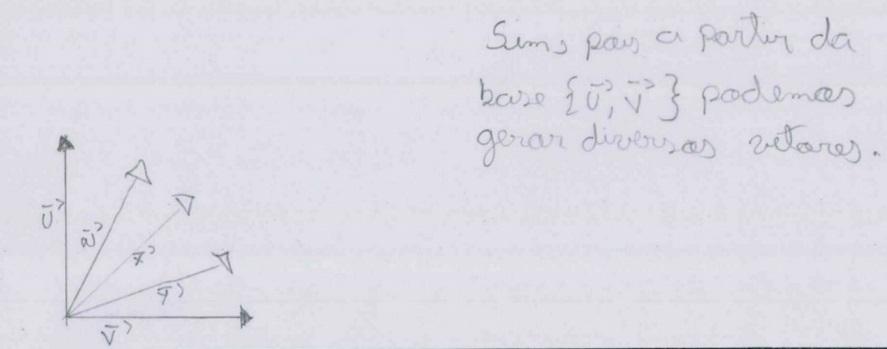 Sim, pois a partir da
base {U⃗, V⃗} podemos
gerar diversos vetores.
U⃗
V⃗